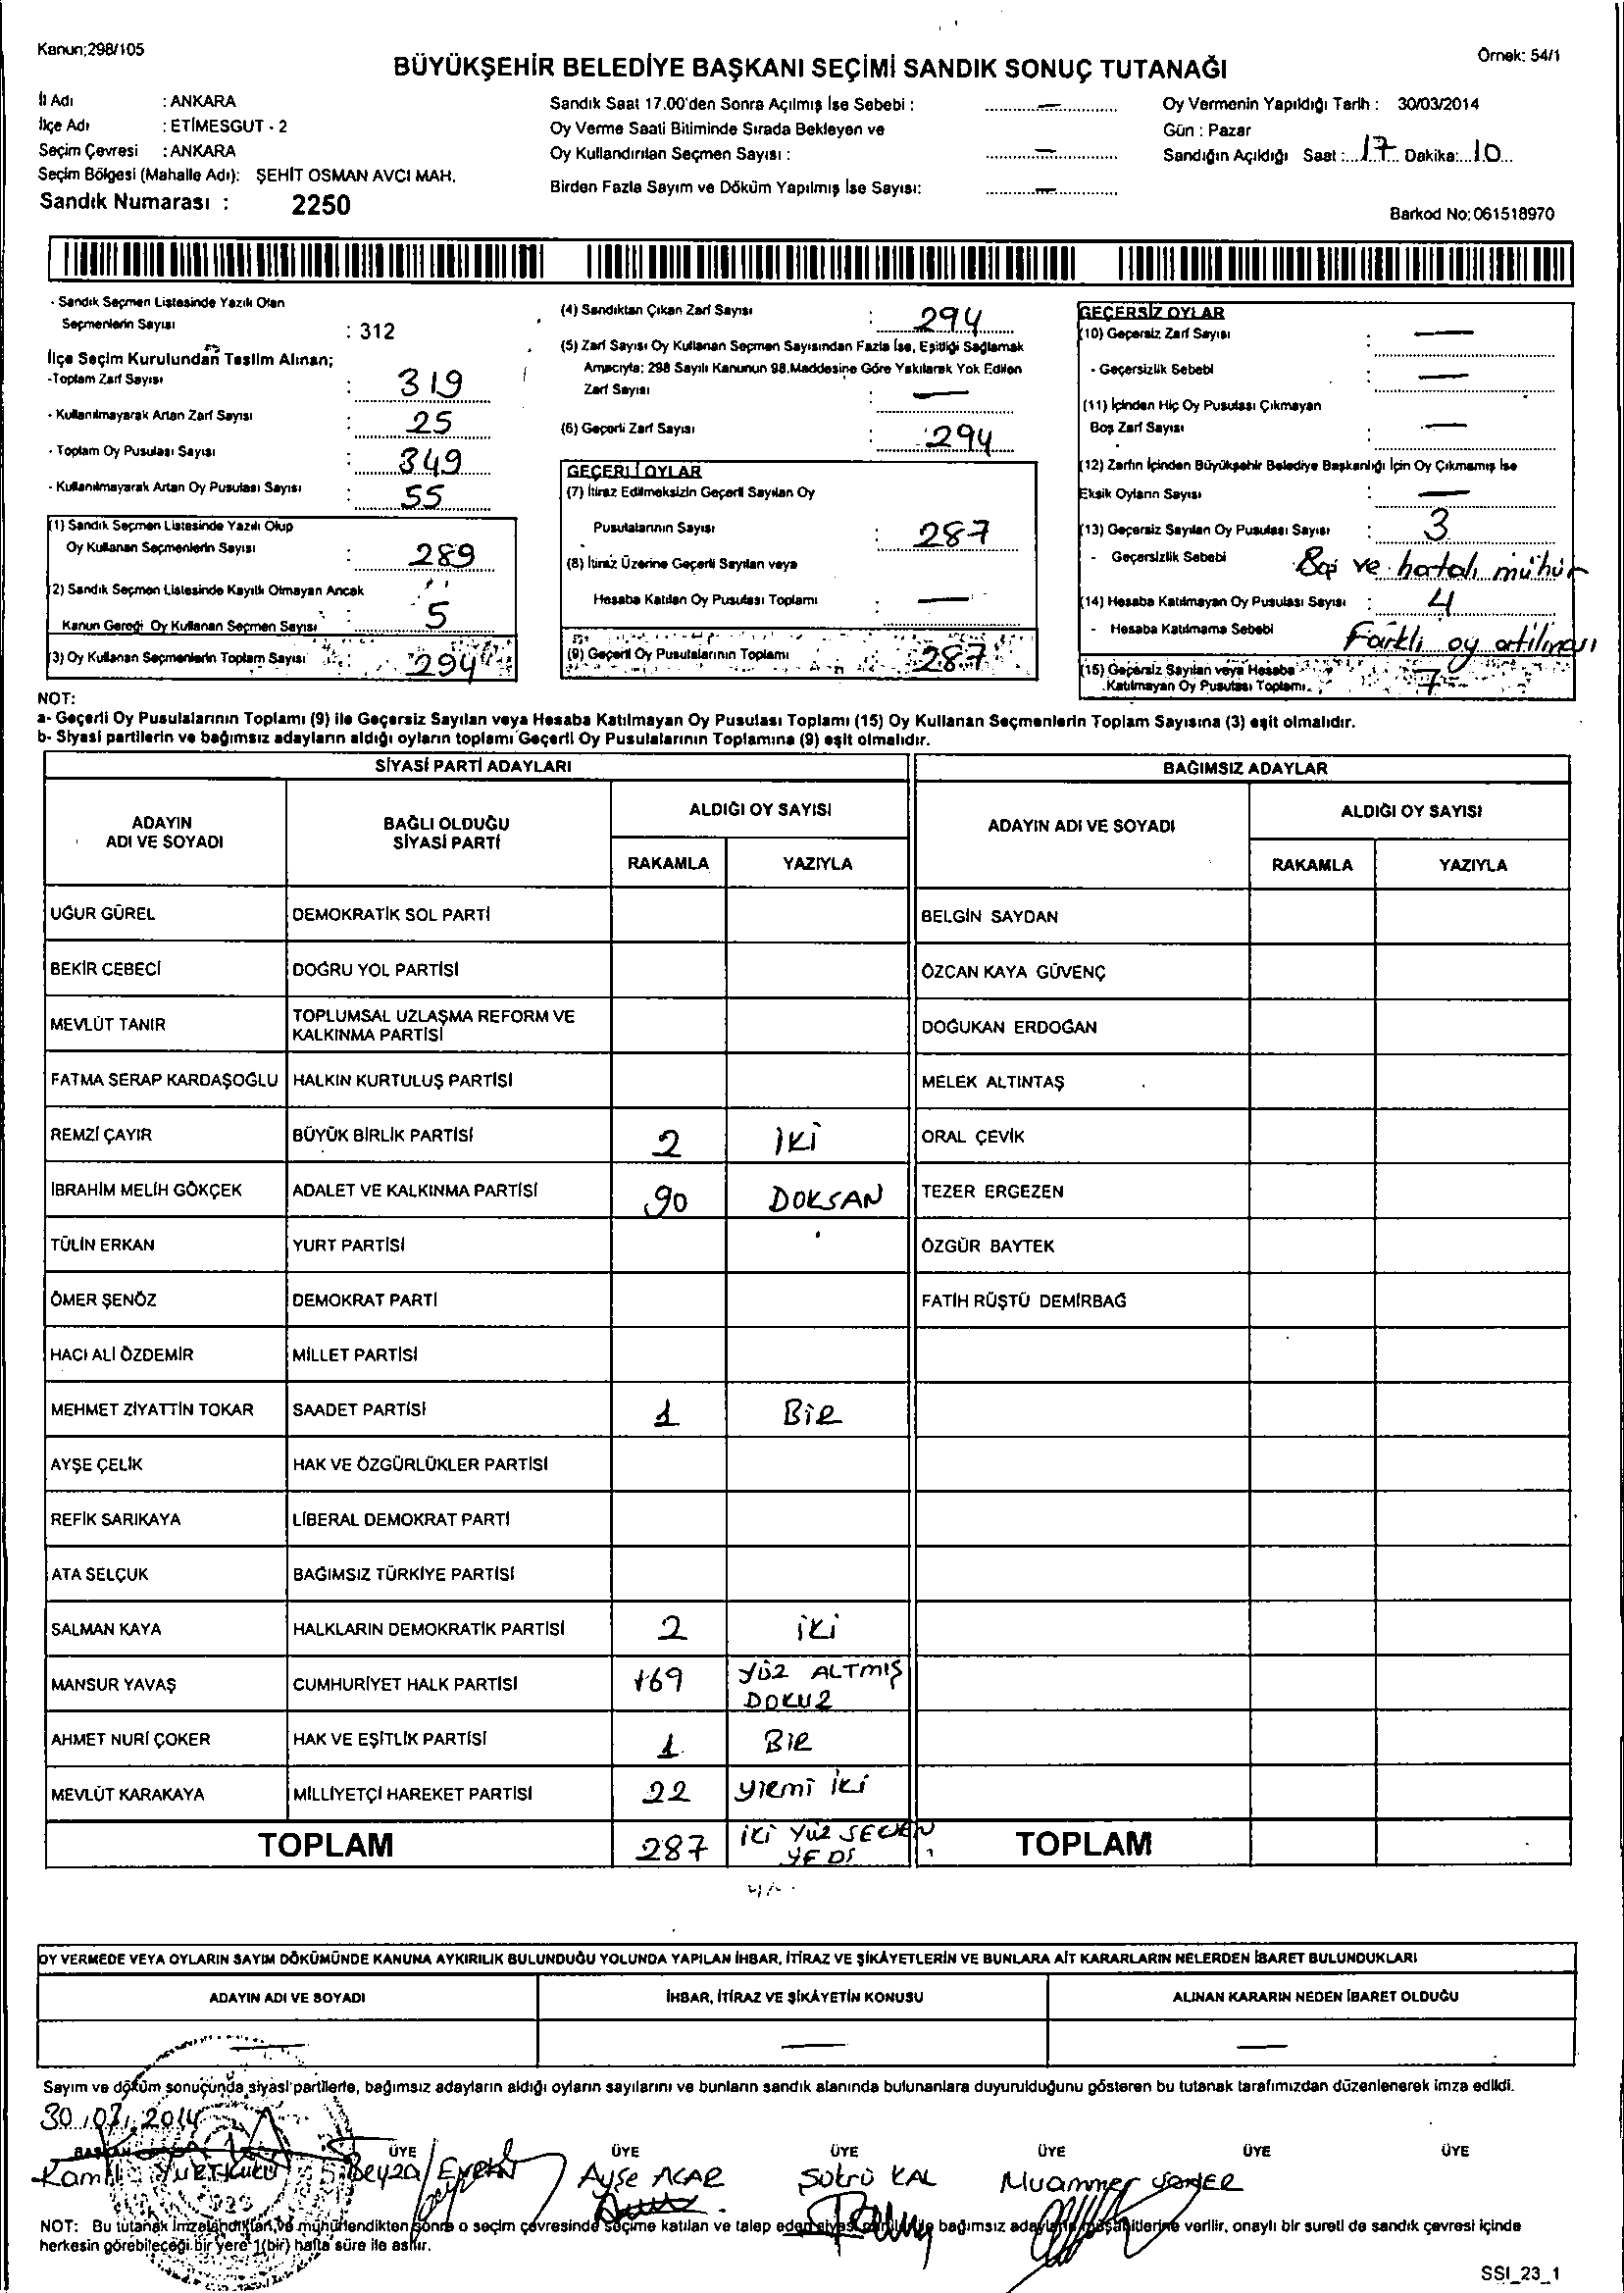 Kanun:298/105
Örnek: 54/1
BÜYÜKŞEHİR BELEDİYE BAŞKANI SEÇİMİ SANDIK SONUÇ TUTANAĞI
İl Adı : ANKARA
İlçe Adı : ETİMESGUT - 2
Seçim Çevresi : ANKARA
Seçim Bölgesi (Mahalle Adı): ŞEHİT OSMAN AVCI MAH.
Sandık Numarası : 2250
Sandık Saat 17.00'den Sonra Açılmış İse Sebebi : —
Oy Verme Saati Bitiminde Sırada Bekleyen ve
Oy Kullandırılan Seçmen Sayısı : —
Birden Fazla Sayım ve Döküm Yapılmış İse Sayısı: —
Oy Vermenin Yapıldığı Tarih : 30/03/2014
Gün : Pazar
Sandığın Açıldığı Saat : 17 Dakika: 10
Barkod No: 061518970
- Sandık Seçmen Listesinde Yazılı Olan
Seçmenlerin Sayısı : 312
İlçe Seçim Kurulundan Teslim Alınan;
-Toplam Zarf Sayısı : 319
- Kullanılmayarak Artan Zarf Sayısı : 25
- Toplam Oy Pusulası Sayısı : 349
- Kullanılmayarak Artan Oy Pusulası Sayısı : 55
(1) Sandık Seçmen Listesinde Yazılı Olup
Oy Kullanan Seçmenlerin Sayısı : 289
(2) Sandık Seçmen Listesinde Kayıtlı Olmayan Ancak
Kanun Gereği Oy Kullanan Seçmen Sayısı 5
(3) Oy Kullanan Seçmenlerin Toplam Sayısı 294
(4) Sandıktan Çıkan Zarf Sayısı : 294
(5) Zarf Sayısı Oy Kullanan Seçmen Sayısından Fazla İse, Eşitliği Sağlamak
Amacıyla; 298 Sayılı Kanunun 98.Maddesine Göre Yakılarak Yok Edilen
Zarf Sayısı : —
(6) Geçerli Zarf Sayısı : 294
GEÇERLİ OYLAR
(7) İtiraz Edilmeksizin Geçerli Sayılan Oy
Pusulalarının Sayısı : 287
(8) İtiraz Üzerine Geçerli Sayılan veya
Hesaba Katılan Oy Pusulası Toplamı : —
(9) Geçerli Oy Pusulalarının Toplamı 287
GEÇERSİZ OYLAR
(10) Geçersiz Zarf Sayısı : —
- Geçersizlik Sebebi : —
(11) İçinden Hiç Oy Pusulası Çıkmayan
Boş Zarf Sayısı : —
(12) Zarfın İçinden Büyükşehir Belediye Başkanlığı İçin Oy Çıkmamış İse
Eksik Oyların Sayısı : —
(13) Geçersiz Sayılan Oy Pusulası Sayısı : 3
- Geçersizlik Sebebi : Boş ve hatalı mühür
(14) Hesaba Katılmayan Oy Pusulası Sayısı : 4
- Hesaba Katılmama Sebebi Farklı oy atılması
(15) Geçersiz Sayılan veya Hesaba
Katılmayan Oy Pusulası Toplamı. 7
NOT:
a- Geçerli Oy Pusulalarının Toplamı (9) ile Geçersiz Sayılan veya Hesaba Katılmayan Oy Pusulası Toplamı (15) Oy Kullanan Seçmenlerin Toplam Sayısına (3) eşit olmalıdır.
b- Siyasi partilerin ve bağımsız adayların aldığı oyların toplamı Geçerli Oy Pusulalarının Toplamına (9) eşit olmalıdır.
SİYASİ PARTİ ADAYLARI
BAĞIMSIZ ADAYLAR
ADAYIN
ADI VE SOYADI
BAĞLI OLDUĞU
SİYASİ PARTİ
ALDIĞI OY SAYISI
RAKAMLA YAZIYLA
ADAYIN ADI VE SOYADI
ALDIĞI OY SAYISI
RAKAMLA YAZIYLA
UĞUR GÜREL DEMOKRATİK SOL PARTİ BELGİN SAYDAN
BEKİR CEBECİ DOĞRU YOL PARTİSİ ÖZCAN KAYA GÜVENÇ
MEVLÜT TANIR TOPLUMSAL UZLAŞMA REFORM VE
KALKINMA PARTİSİ DOĞUKAN ERDOĞAN
FATMA SERAP KARDAŞOĞLU HALKIN KURTULUŞ PARTİSİ MELEK ALTINTAŞ
REMZİ ÇAYIR BÜYÜK BİRLİK PARTİSİ 2 İKİ ORAL ÇEVİK
İBRAHİM MELİH GÖKÇEK ADALET VE KALKINMA PARTİSİ 90 DOKSAN TEZER ERGEZEN
TÜLİN ERKAN YURT PARTİSİ ÖZGÜR BAYTEK
ÖMER ŞENÖZ DEMOKRAT PARTİ FATİH RÜŞTÜ DEMİRBAĞ
HACI ALİ ÖZDEMİR MİLLET PARTİSİ
MEHMET ZİYATTİN TOKAR SAADET PARTİSİ 1 BİR
AYŞE ÇELİK HAK VE ÖZGÜRLÜKLER PARTİSİ
REFİK SARIKAYA LİBERAL DEMOKRAT PARTİ
ATA SELÇUK BAĞIMSIZ TÜRKİYE PARTİSİ
SALMAN KAYA HALKLARIN DEMOKRATİK PARTİSİ 2 İKİ
MANSUR YAVAŞ CUMHURİYET HALK PARTİSİ 169 YÜZ ALTMIŞ
DOKUZ
AHMET NURİ ÇOKER HAK VE EŞİTLİK PARTİSİ 1 BİR
MEVLÜT KARAKAYA MİLLİYETÇİ HAREKET PARTİSİ 22 YİRMİ İKİ
TOPLAM 287 İKİ YÜZ SEKSEN
YEDİ TOPLAM
OY VERMEDE VEYA OYLARIN SAYIM DÖKÜMÜNDE KANUNA AYKIRILIK BULUNDUĞU YOLUNDA YAPILAN İHBAR, İTİRAZ VE ŞİKÂYETLERİN VE BUNLARA AİT KARARLARIN NELERDEN İBARET BULUNDUKLARI
ADAYIN ADI VE SOYADI İHBAR, İTİRAZ VE ŞİKÂYETİN KONUSU ALINAN KARARIN NEDEN İBARET OLDUĞU
— — —
Sayım ve döküm sonuçunda siyasi partilerle, bağımsız adayların aldığı oyların sayılarını ve bunların sandık alanında bulunanlara duyurulduğunu gösteren bu tutanak tarafımızdan düzenlenerek imza edildi.
30.03.2014
BAŞKAN ÜYE ÜYE ÜYE ÜYE ÜYE ÜYE
Beyza Ayşe ACAR Şükrü KAL Muammer
NOT: Bu tutanak İmzalandıktan ve mühürlendikten sonra o seçim çevresinde seçime katılan ve talep eden siyasi partilerle bağımsız adayların müşahitlerine verilir, onaylı bir sureti de sandık çevresi içinde
herkesin görebileceği bir yere 1(bir) hafta süre ile asılır.
SSI_23_1